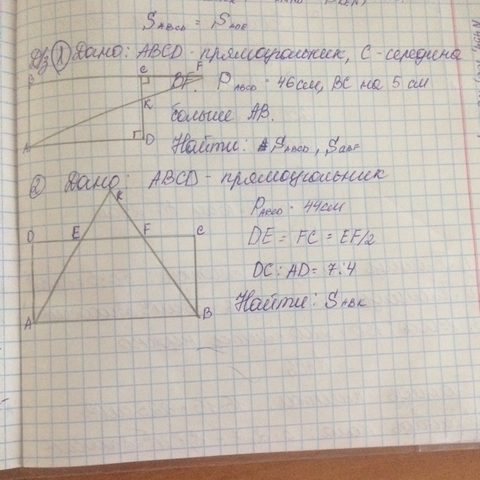 S ABCD = S AOE
Д/з ① Дано: ABCD - прямоугольник, C - середина
BF. P ABCD = 46 см, BC на 5 см
больше AB.
Найти: S ABCD, S ABF
B C F
K
A D
② Дано: ABCD - прямоугольник
P ABCD = 44 см
DE = FC = EF/2
DC : AD = 7:4
Найти: S ABK
K
D E F C
A B